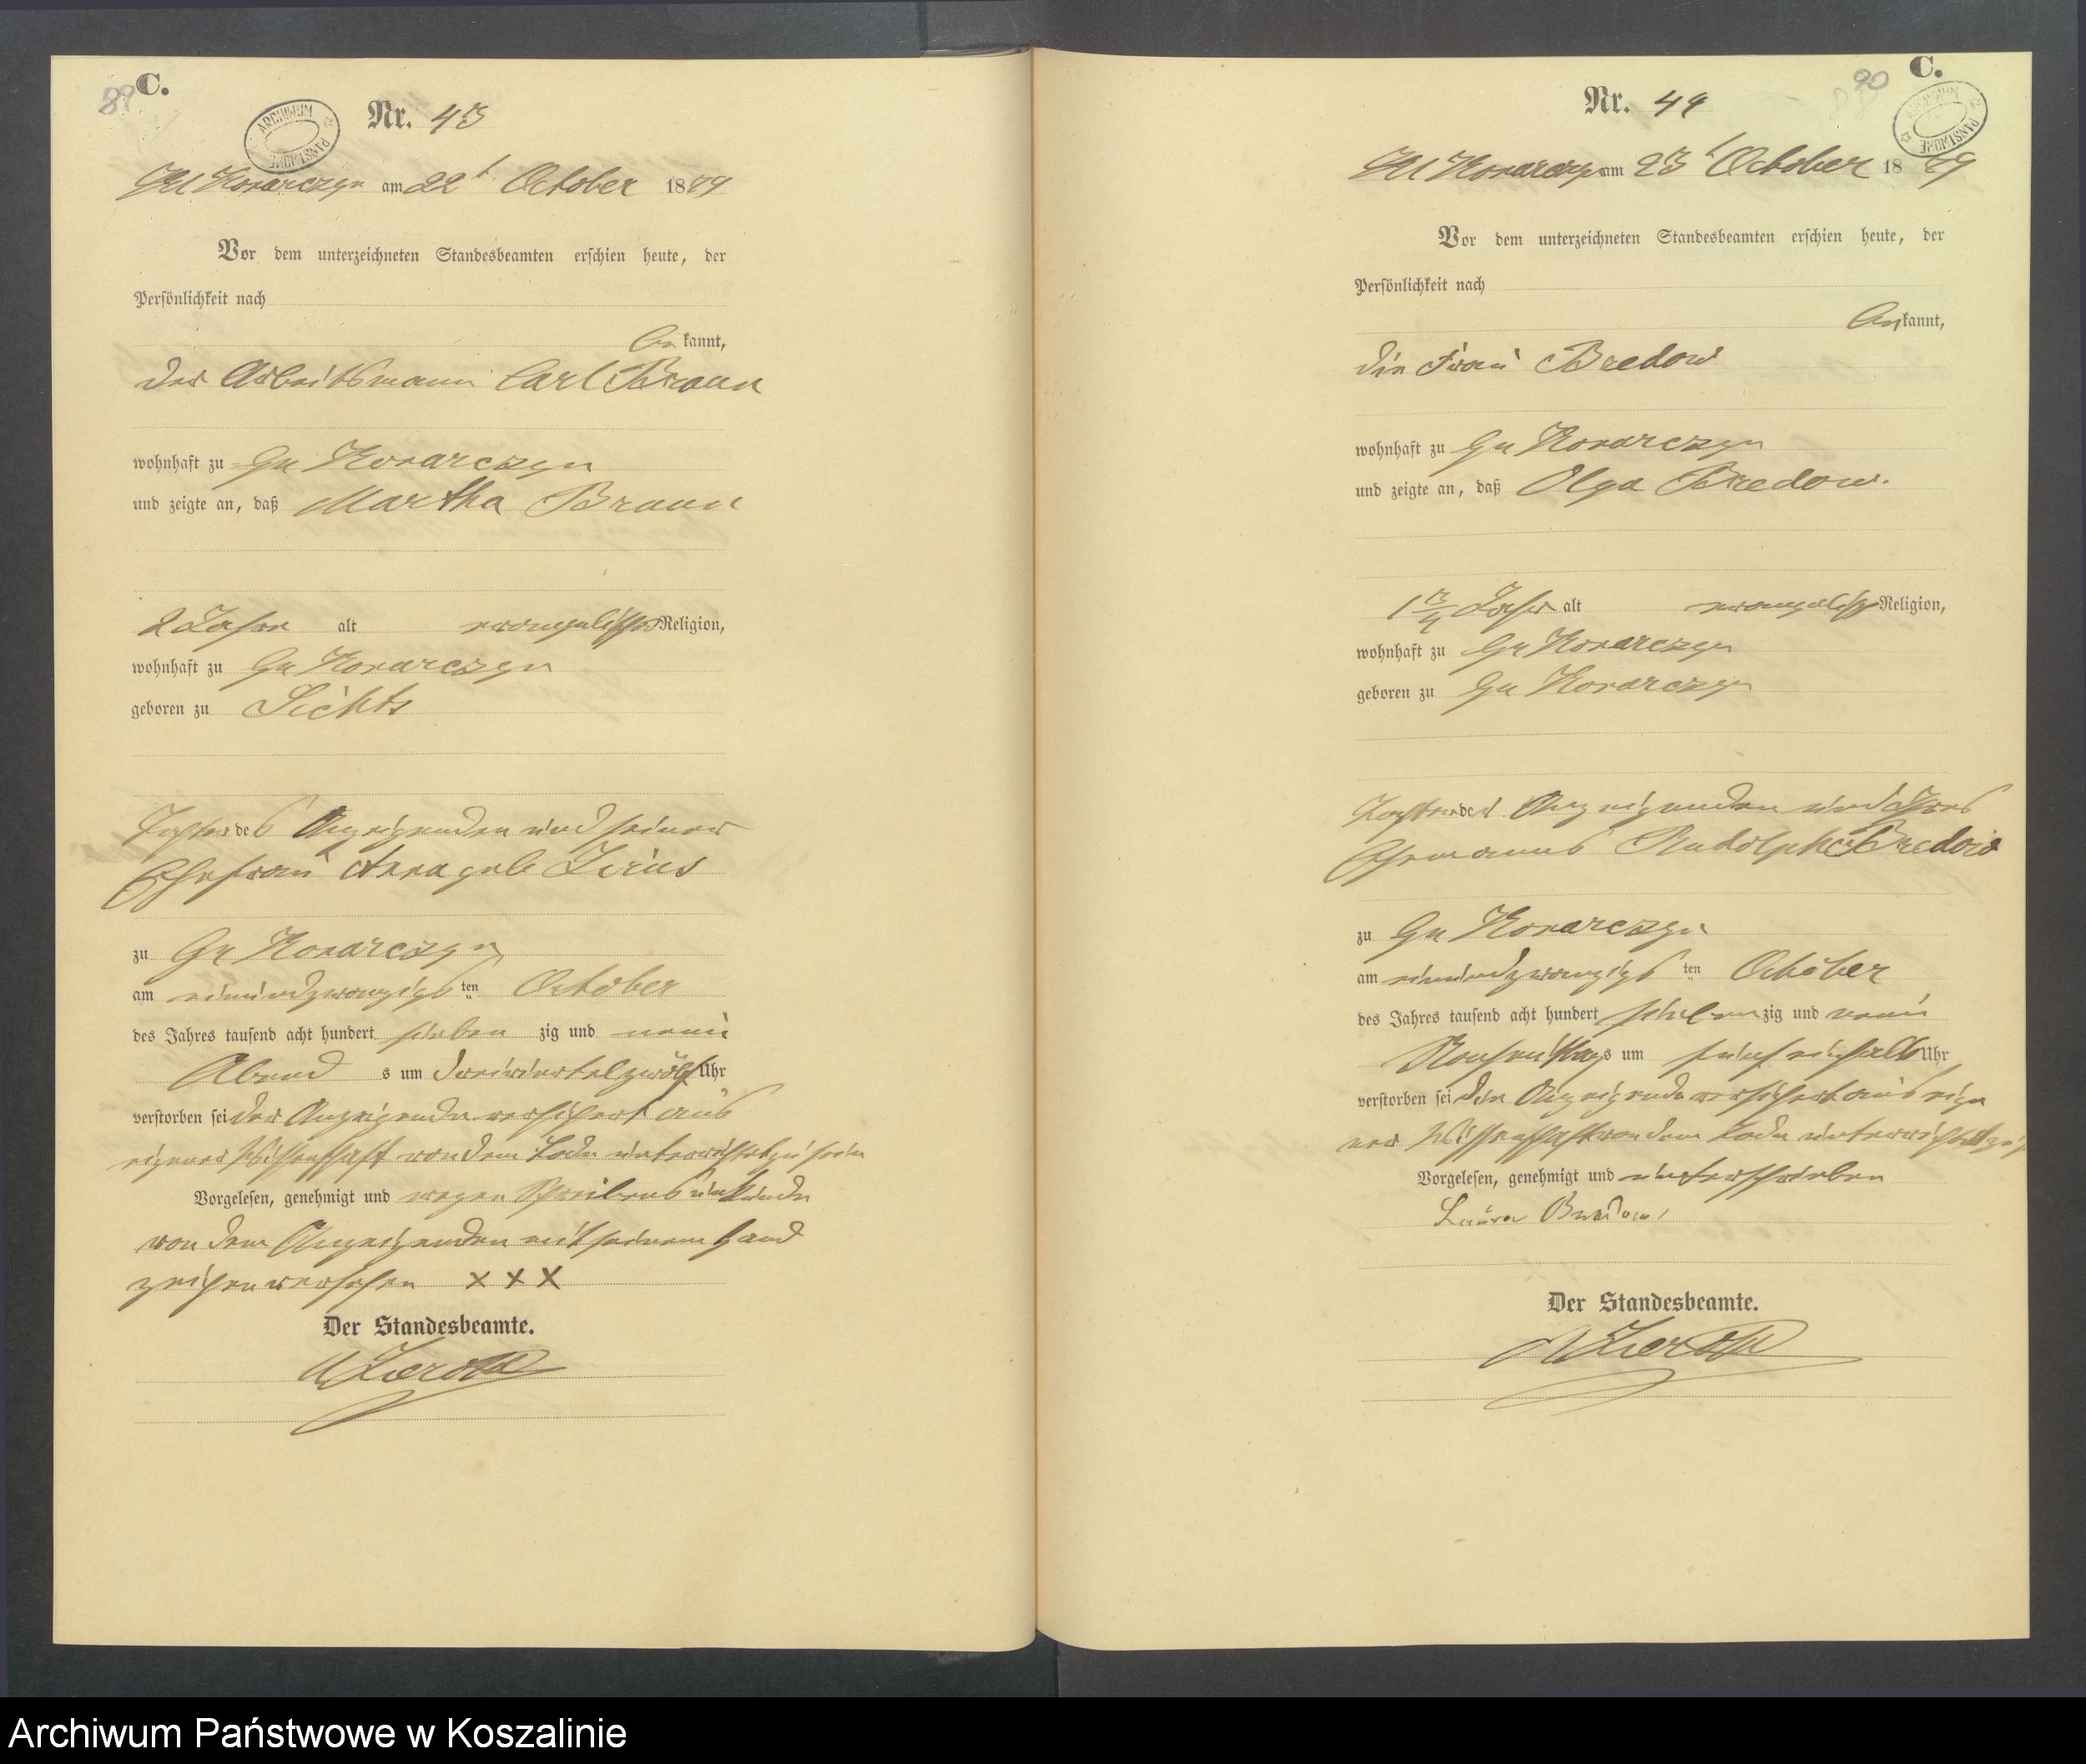 89
C.
ARCHIWUM PAŃSTWOWE
Nr. 43
Kl Konarczyn am 22 t October 1879
Vor dem unterzeichneten Standesbeamten erschien heute, der
Persönlichkeit nach
be kannt,
der Arbeitsmann Carl Braun
wohnhaft zu Gr Konarczyn
und zeigte an, daß Martha Braun
2 Jahre alt evangelischer Religion,
wohnhaft zu Gr Konarczyn
geboren zu
Tochter des Anzeigenden und seiner
Ehefrau Anna geb
zu Gr Konarczyn
am einundzwanzigs ten October
des Jahres tausend acht hundert sieben zig und neun
Abend s um dreiviertelzwölf Uhr
verstorben sei der Anzeigende versichert aus
eigener Wissenschaft von dem Tode unterrichtet zu sein
Vorgelesen, genehmigt und wegen Schreibensunkunde
von dem Anzeigenden mit seinem Hand
zeichen versehen x x x
Der Standesbeamte.
90
C.
ARCHIWUM PAŃSTWOWE
Nr. 44
Kl Konarczyn am 23 t October 1879
Vor dem unterzeichneten Standesbeamten erschien heute, der
Persönlichkeit nach
be kannt,
die Frau Bredow
wohnhaft zu Gr Konarczyn
und zeigte an, daß Olga Bredow.
1 3/4 Jahr alt evangelisch Religion,
wohnhaft zu Gr Konarczyn
geboren zu Gr Konarczyn
Tochter der Anzeigenden und Ihres
Ehemanns Rudolph Bredow
zu Gr Konarczyn
am einundzwanzigs ten October
des Jahres tausend acht hundert sieben zig und neun
Nachmittags um fünfeinhalb Uhr
verstorben sei die Anzeigende versichert aus eige
ner Wissenschaft von dem Tode unterrichtet
Vorgelesen, genehmigt und unterschrieben
Laura Bredow
Der Standesbeamte.
Archiwum Państwowe w Koszalinie